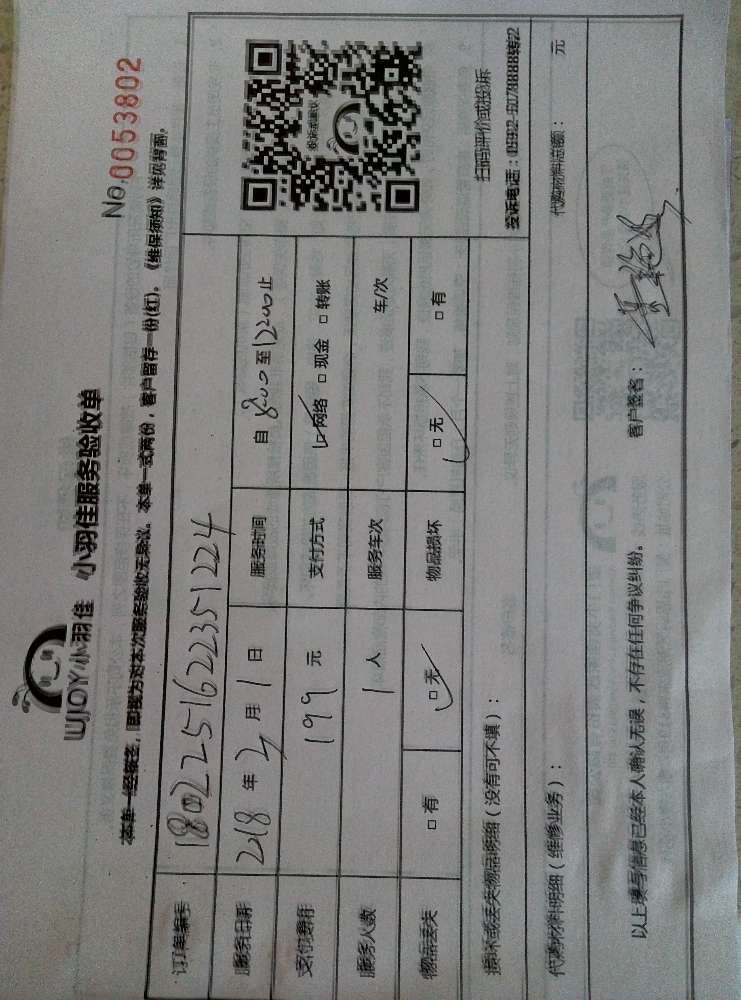 WJOY小羽佳 小羽佳服务验收单
No.0053802
本单一经签签,即视为对本次服务验收无异议。本单一式两份,客户留存一份(红)。《维保须知》详见背面。
订单编号 1802251622351224
服务日期 2018 年 2 月 1 日 服务时间 自 8:00 至 12:00 止
支付费用 199 元 支付方式 □网络 □现金 □转账
服务人数 1 人 服务车次 车/次
物品丢失 □有 □无 物品损坏 □无 □有
扫码评价或投诉
投诉电话:0592-5178888转2
损坏或丢失物品明细(没有可不填):
代购材料明细(维修业务): 代购材料总额: 元
以上填写信息已经本人确认无误,不存在任何争议纠纷。 客户签名: